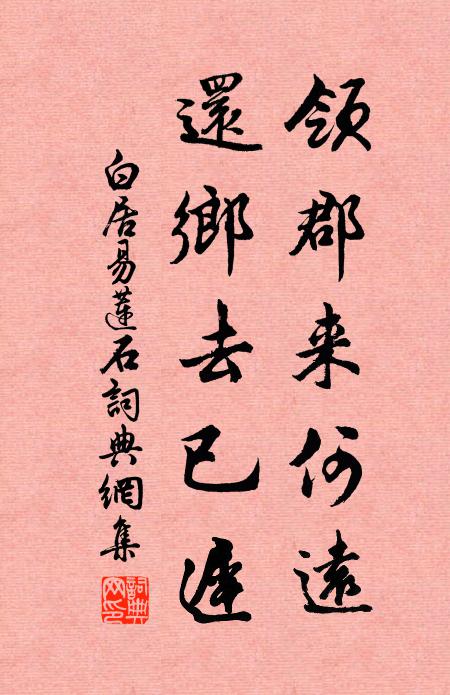 領郡来何遠
還鄉去已遲
白居易蓮石詞典網集
詞典网印